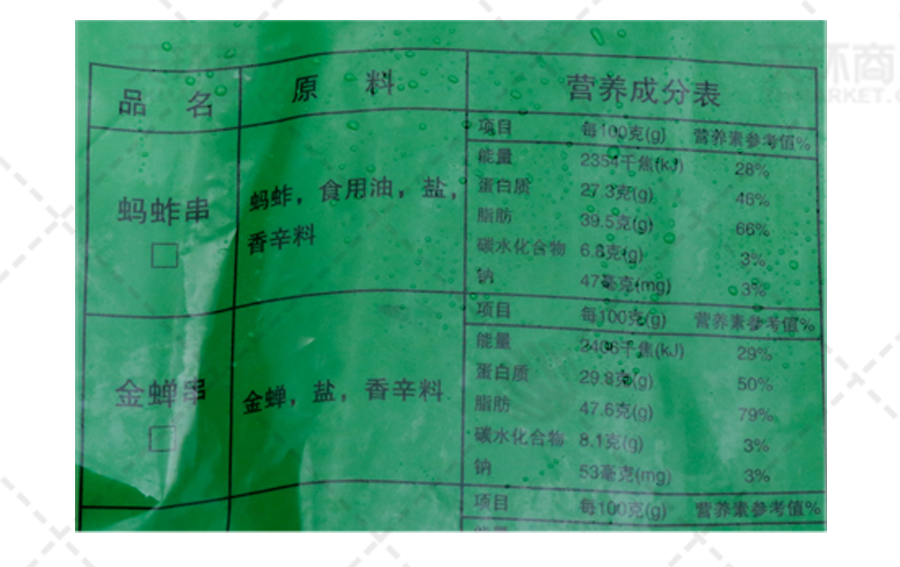 品 名 原 料 营养成分表
项目 每100克(g) 营养素参考值%
能量 2354千焦(kJ) 28%
蛋白质 27.3克(g) 46%
蚂蚱串 蚂蚱，食用油，盐，
香辛料
脂肪 39.5克(g) 66%
碳水化合物 6.8克(g) 3%
钠 47毫克(mg) 3%
项目 每100克(g) 营养素参考值%
能量 2406千焦(kJ) 29%
蛋白质 29.8克(g) 50%
金蝉串 金蝉，盐，香辛料
脂肪 47.6克(g) 79%
碳水化合物 8.1克(g) 3%
钠 53毫克(mg) 3%
项目 每100克(g) 营养素参考值%